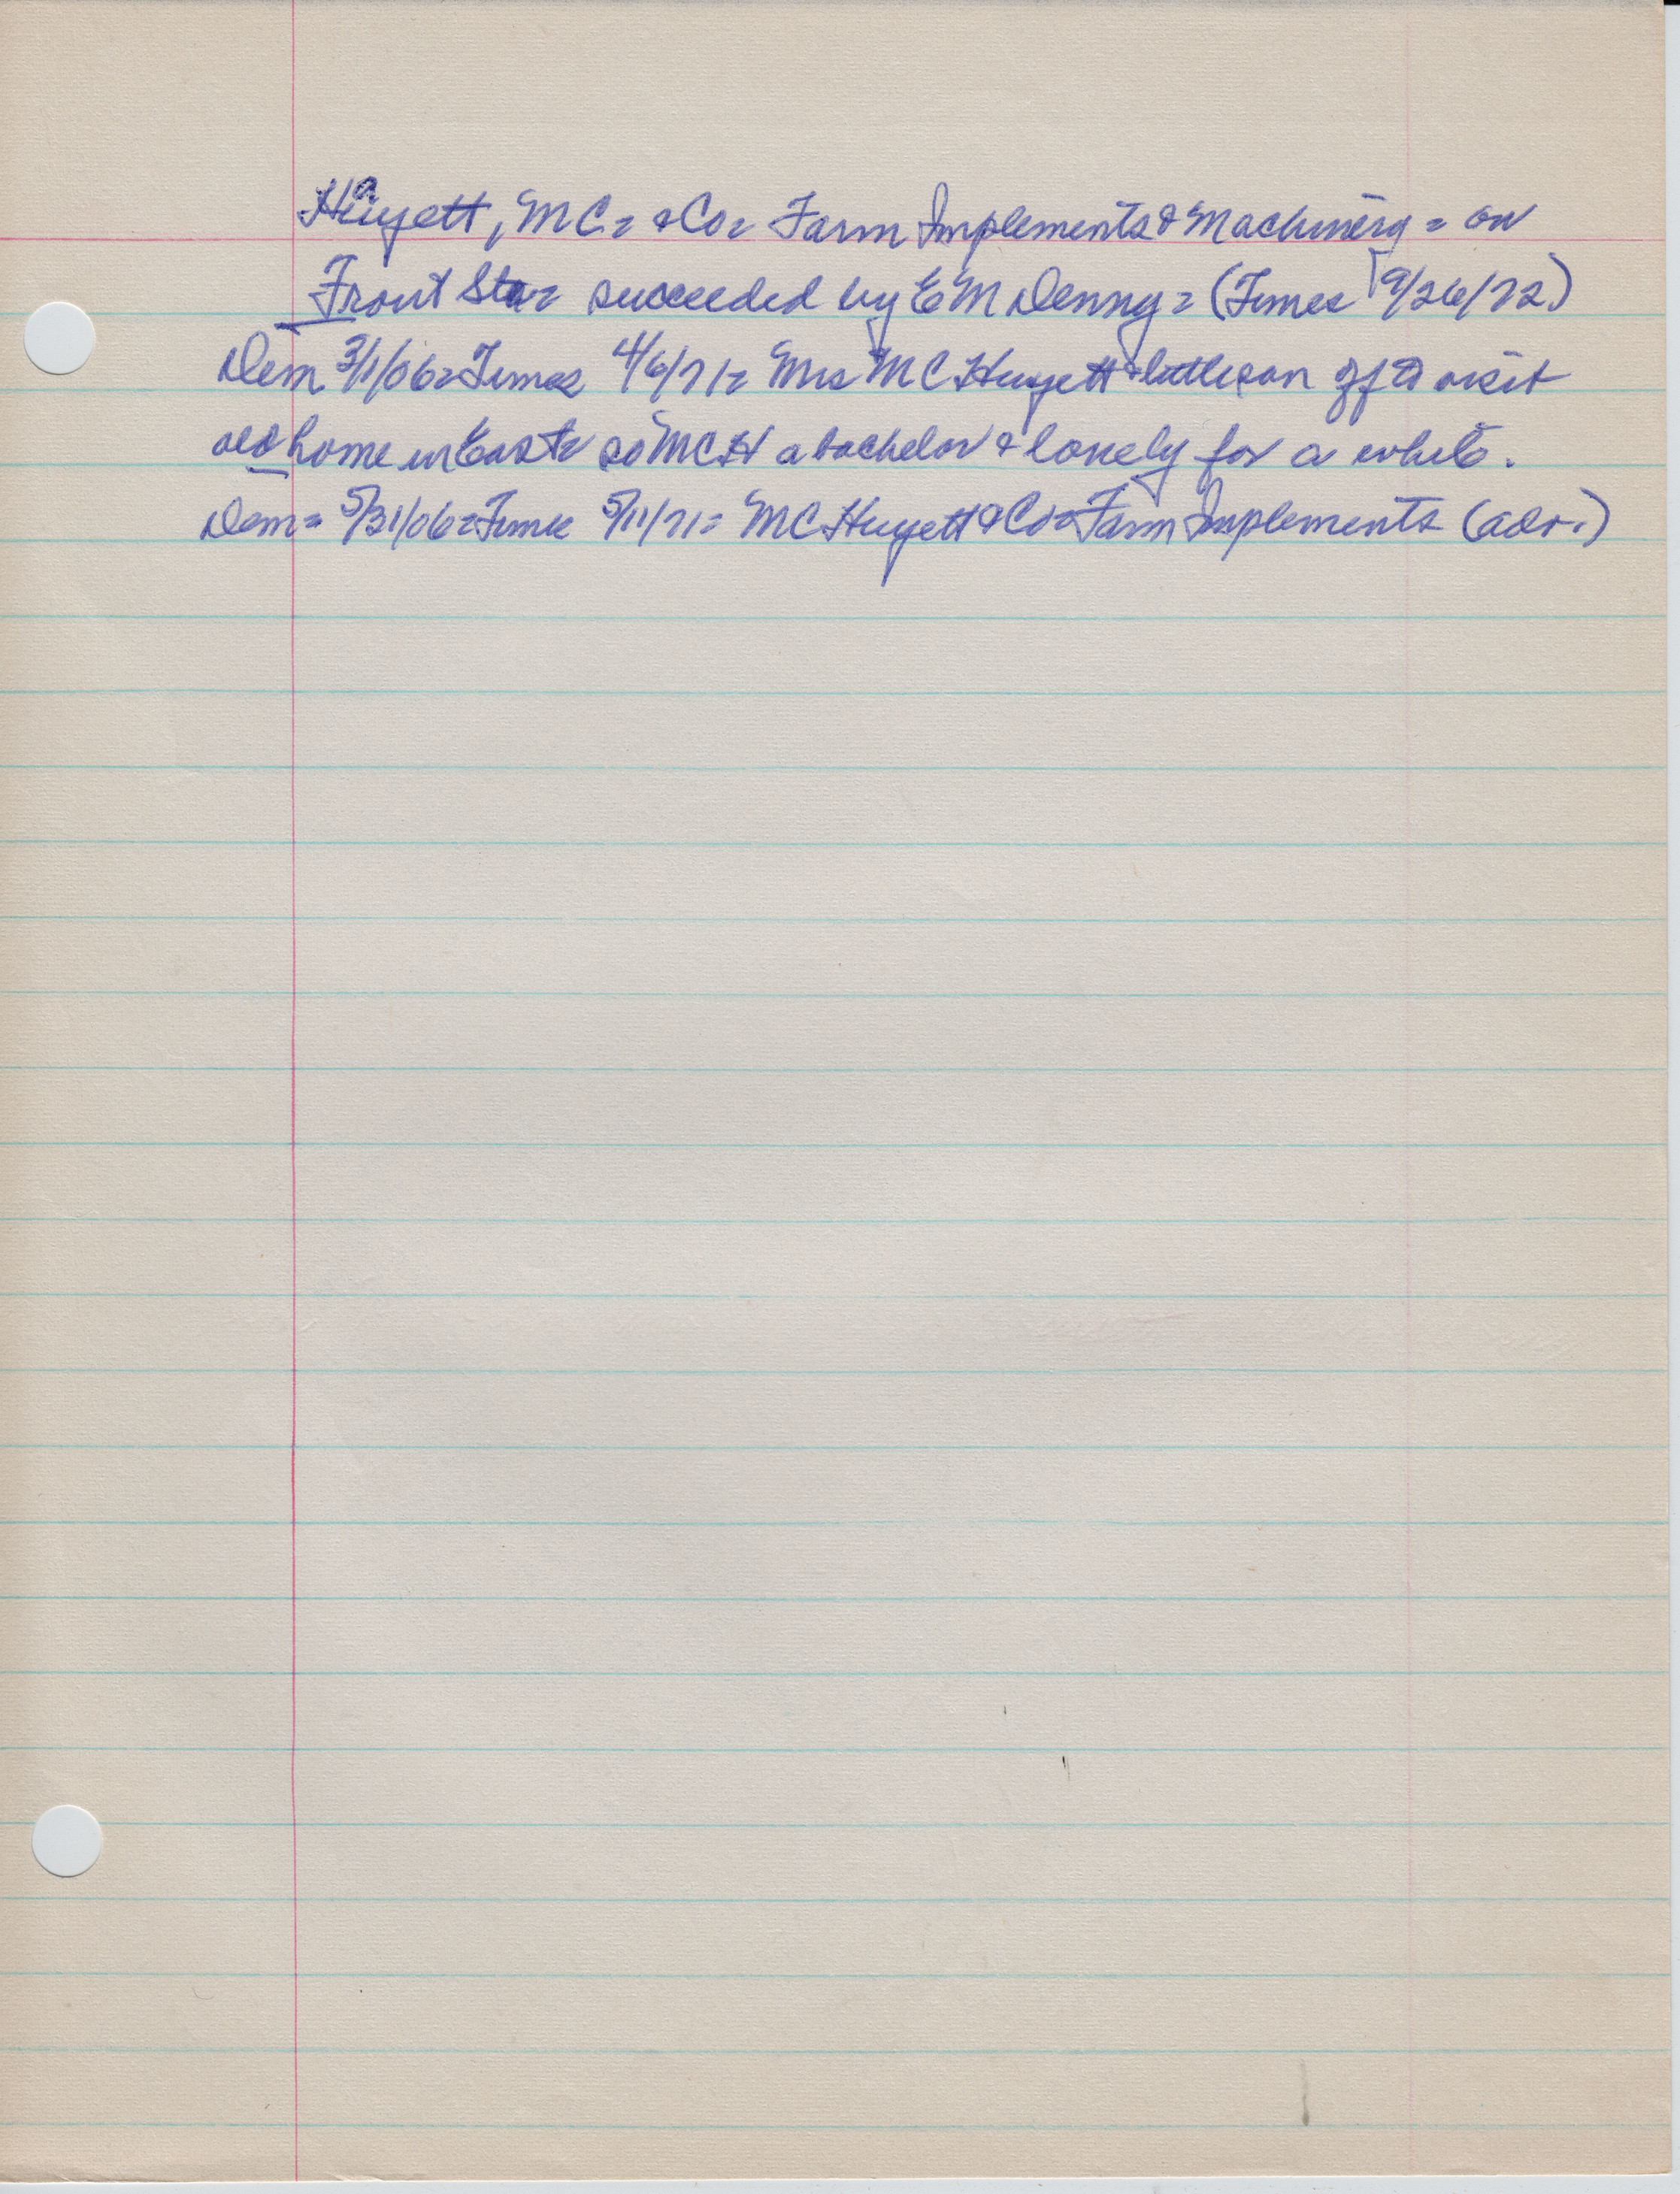 Huyett, MC = & Co = Farm Implements & Machinery = on
Front St = succeeded by E M Denny = (Times 9/26/72)
Dem 3/1/06 = Times 4/6/71 = Mrs MC Huyett & little son gf to visit
old home in East = so MCH a bachelor & lonely for a while.
Dem = 5/31/06 = Times 5/11/71 = MC Huyett & Co = Farm Implements (adv.)